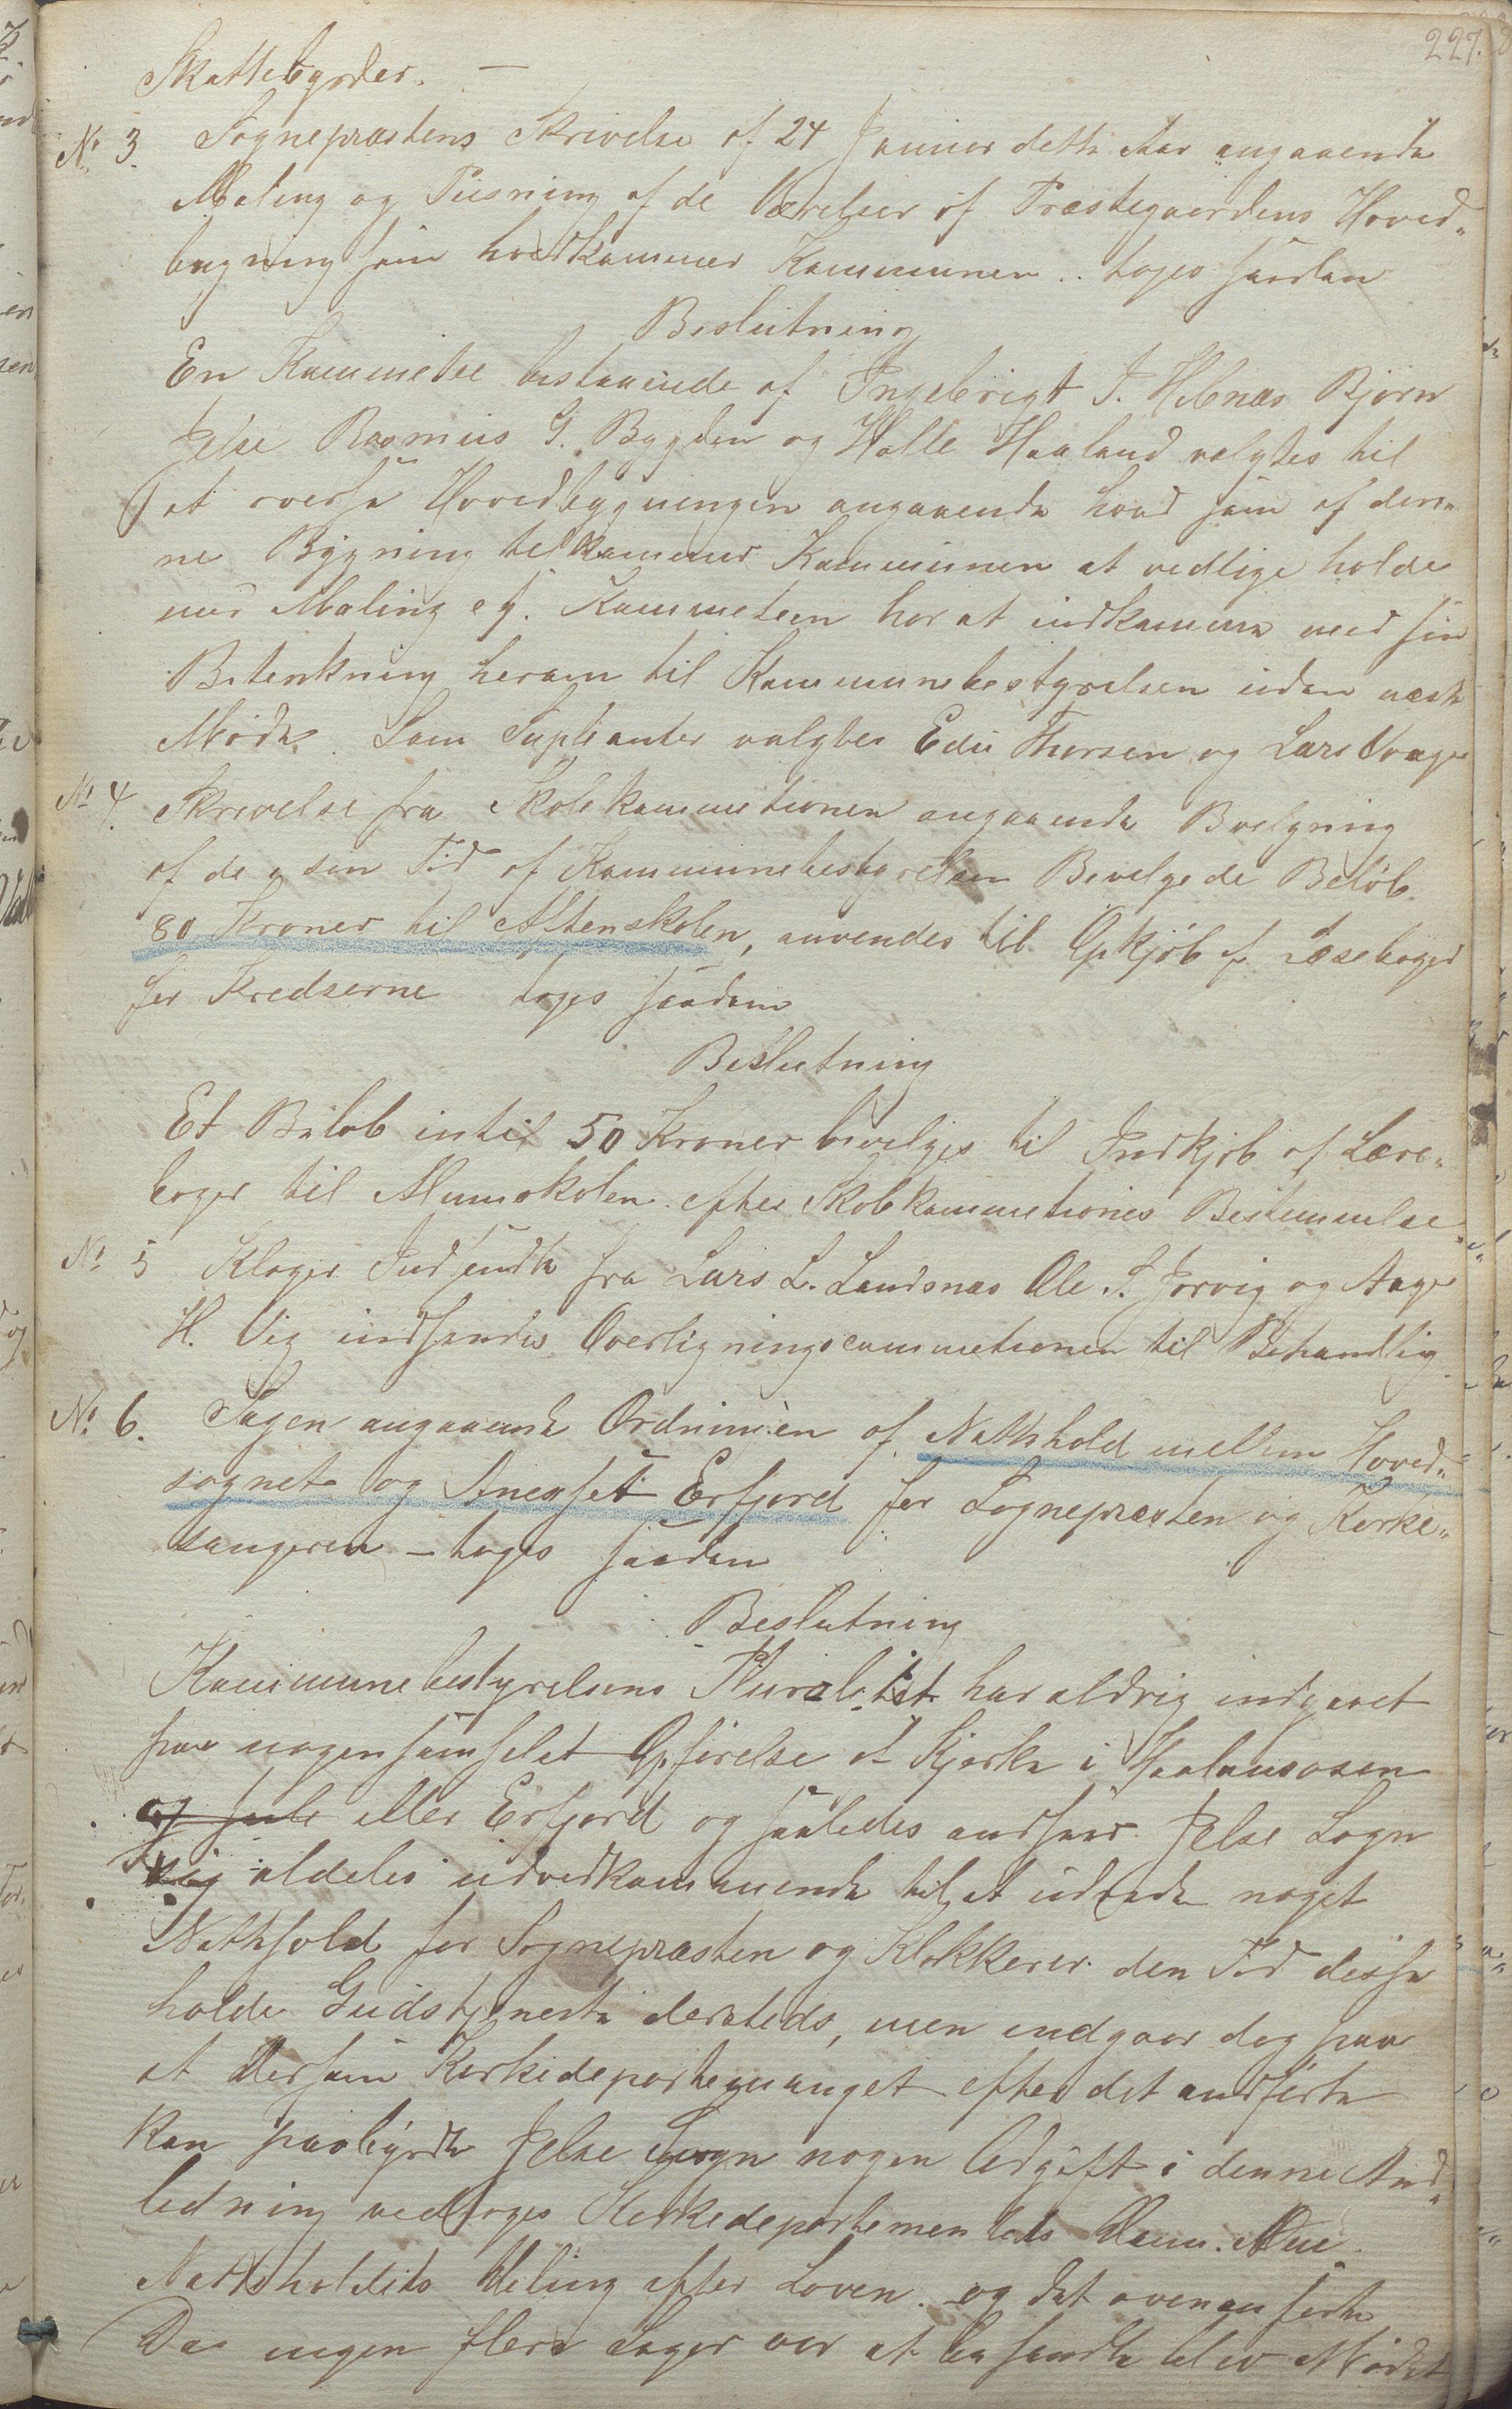 227.
Skattebyrder. —
No 3. Sognepræstens Skrivelse af 24 Januar dette Aar angaaende
Maling og Pusning af de Værelser af Præstegaardens Hoved„
bygning som vedkommer Kommunen .. toges saadan
Beslutning
En Kommitee bestaaende af Ingebrigt I. Hebnæs Bjørn
Jelse Rasmus G. Bygden og Halle Haaland valgtes til
at overse Hovedbygningen angaaende hvad som af den„
ne Bygning tilkommer Kommunen at vedlige holde
med Maling og. Kommeteen har at indkomme med sin
Betenkning herom til Kommunebestyrelsen inden næste
Møde. Som Supleanter valgtes Edu Thorsen og Lars Vaage
No 4. Skrivelse fra Skolekommetionen angaaende Bevelgning
af de i sin Tid af Kommunebestyrelsen Bevelgede Beløb.
80 Kroner til Aftenskolen, anvendes til Opkjøb af Læsebøger
for Kredserne toges saadan
Beslutning
Et Beløb intil 50 Kroner bevelges til Indkjøb af Lære„
bøger til Almuskolen efter Skolekommetiones Bestemmelse
No 5 Klager Indsendte fra Lars L. Landsnæs Ole S. Jorvig og Aage
H. Vig indsendes Overligningscommetionen til Behandlig
No 6. Sagen angaaende Ordningen af Natthold mellem Hoved„
sognet og Anexset Erfjord for Sognepræsten og Kirke„
sangeren — toges saadan
Beslutning
Kommunebestyrelsens Pluralitet har aldrig indgaaet
paa nogensomhelst Opførelse at Kjerke i Haalandsosen
eller Erfjord og saaledes andsaar Jelse Sogn
sig aldeles uvedkommende til at udrede noget
Natthold for Sognepræsten og Klokkeren den Tid disse
holde Gudstjeneste dersteds, men indgaar dog paa
at dersom Kirkedepartemanget efter det andførte
kan paabyrde Jelse Sogn nogen Udgift i denne And„
ledning vedtoges Kirkedepartementets
Nattholdets deling efter Loven. og det ovenanførte
Da ingen flere Sager var at behandle blev Mødet